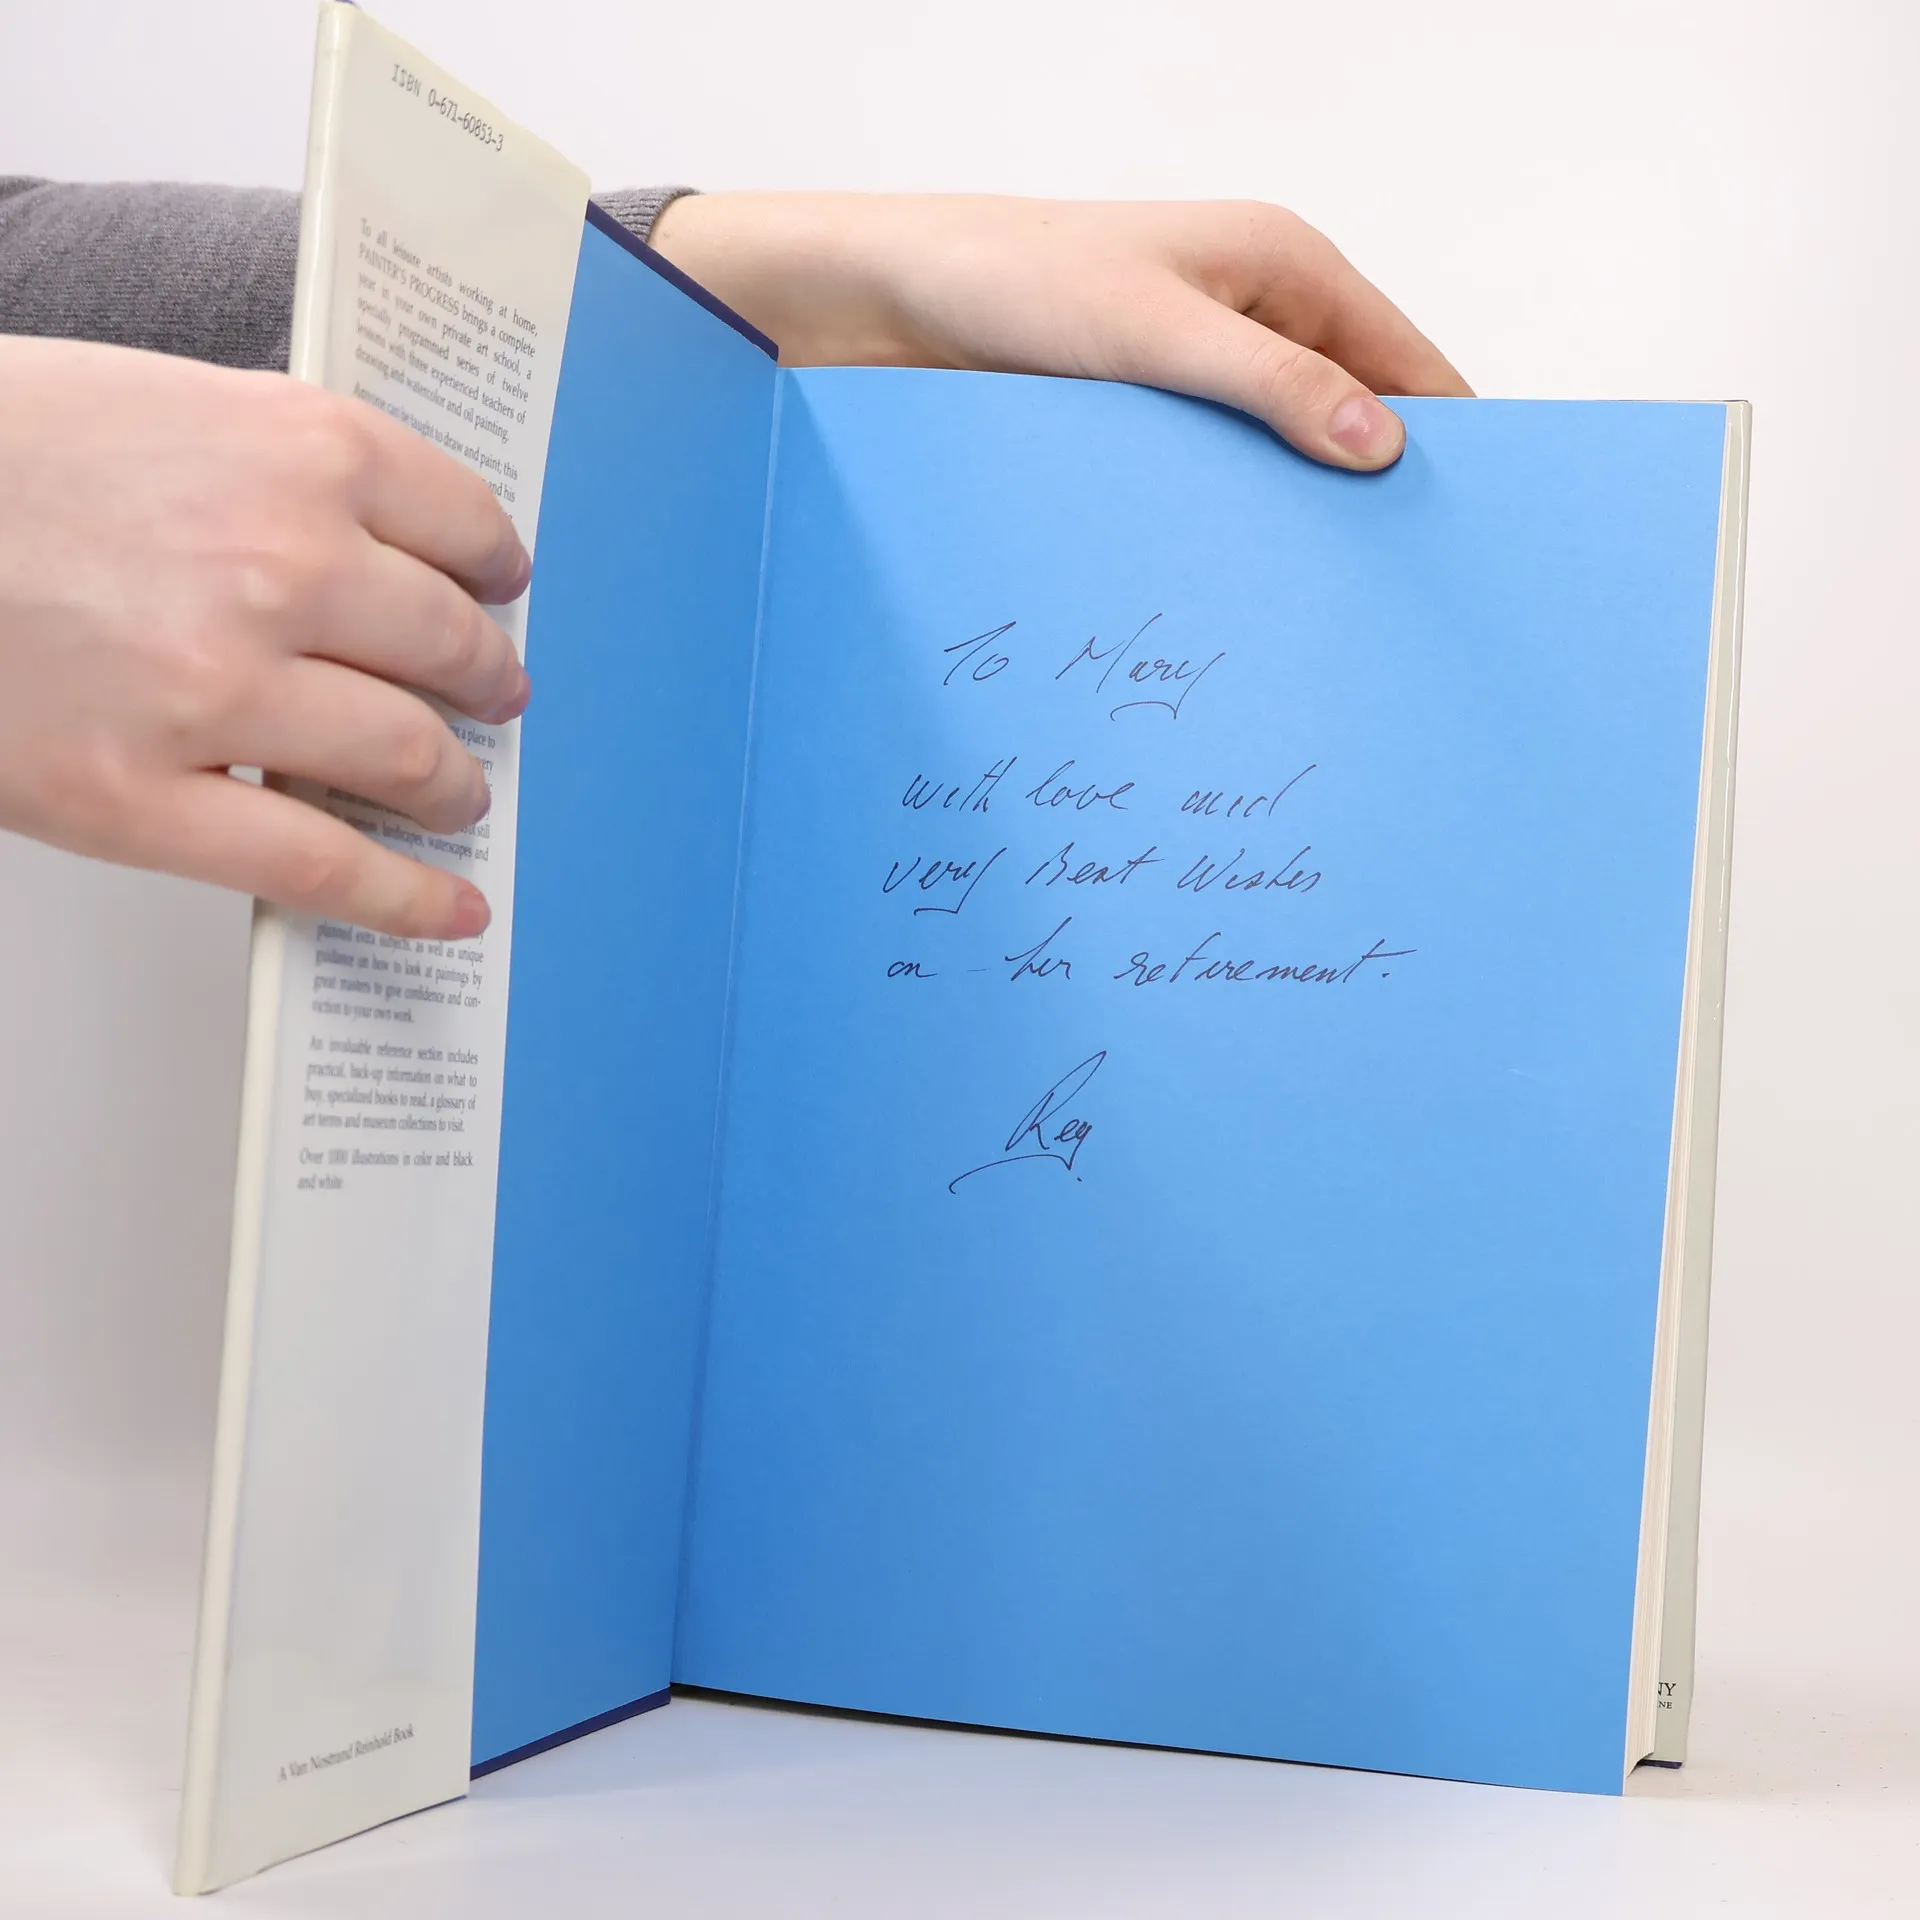 ISBN 0-671-60853-3
To all leisure artists working at home,
PAINTER'S PROGRESS brings a complete
year in your own private art school, a
specially programmed series of twelve
lessons with three experienced teachers of
drawing and watercolor and oil painting.
Anyone can be taught to draw and paint; this
and his
a place to
landscapes, waterscapes and
planned extra subjects, as well as unique
guidance on how to look at paintings by
great masters to give confidence and con-
viction to your own work.
An invaluable reference section includes
practical, back-up information on what to
buy, specialized books to read, a glossary of
art terms and museum collections to visit.
Over 1000 illustrations in color and black
and white
A Van Nostrand Reinhold Book
To Mary
with love and
very Best Wishes
on her retirement.
Reg
NY
NE